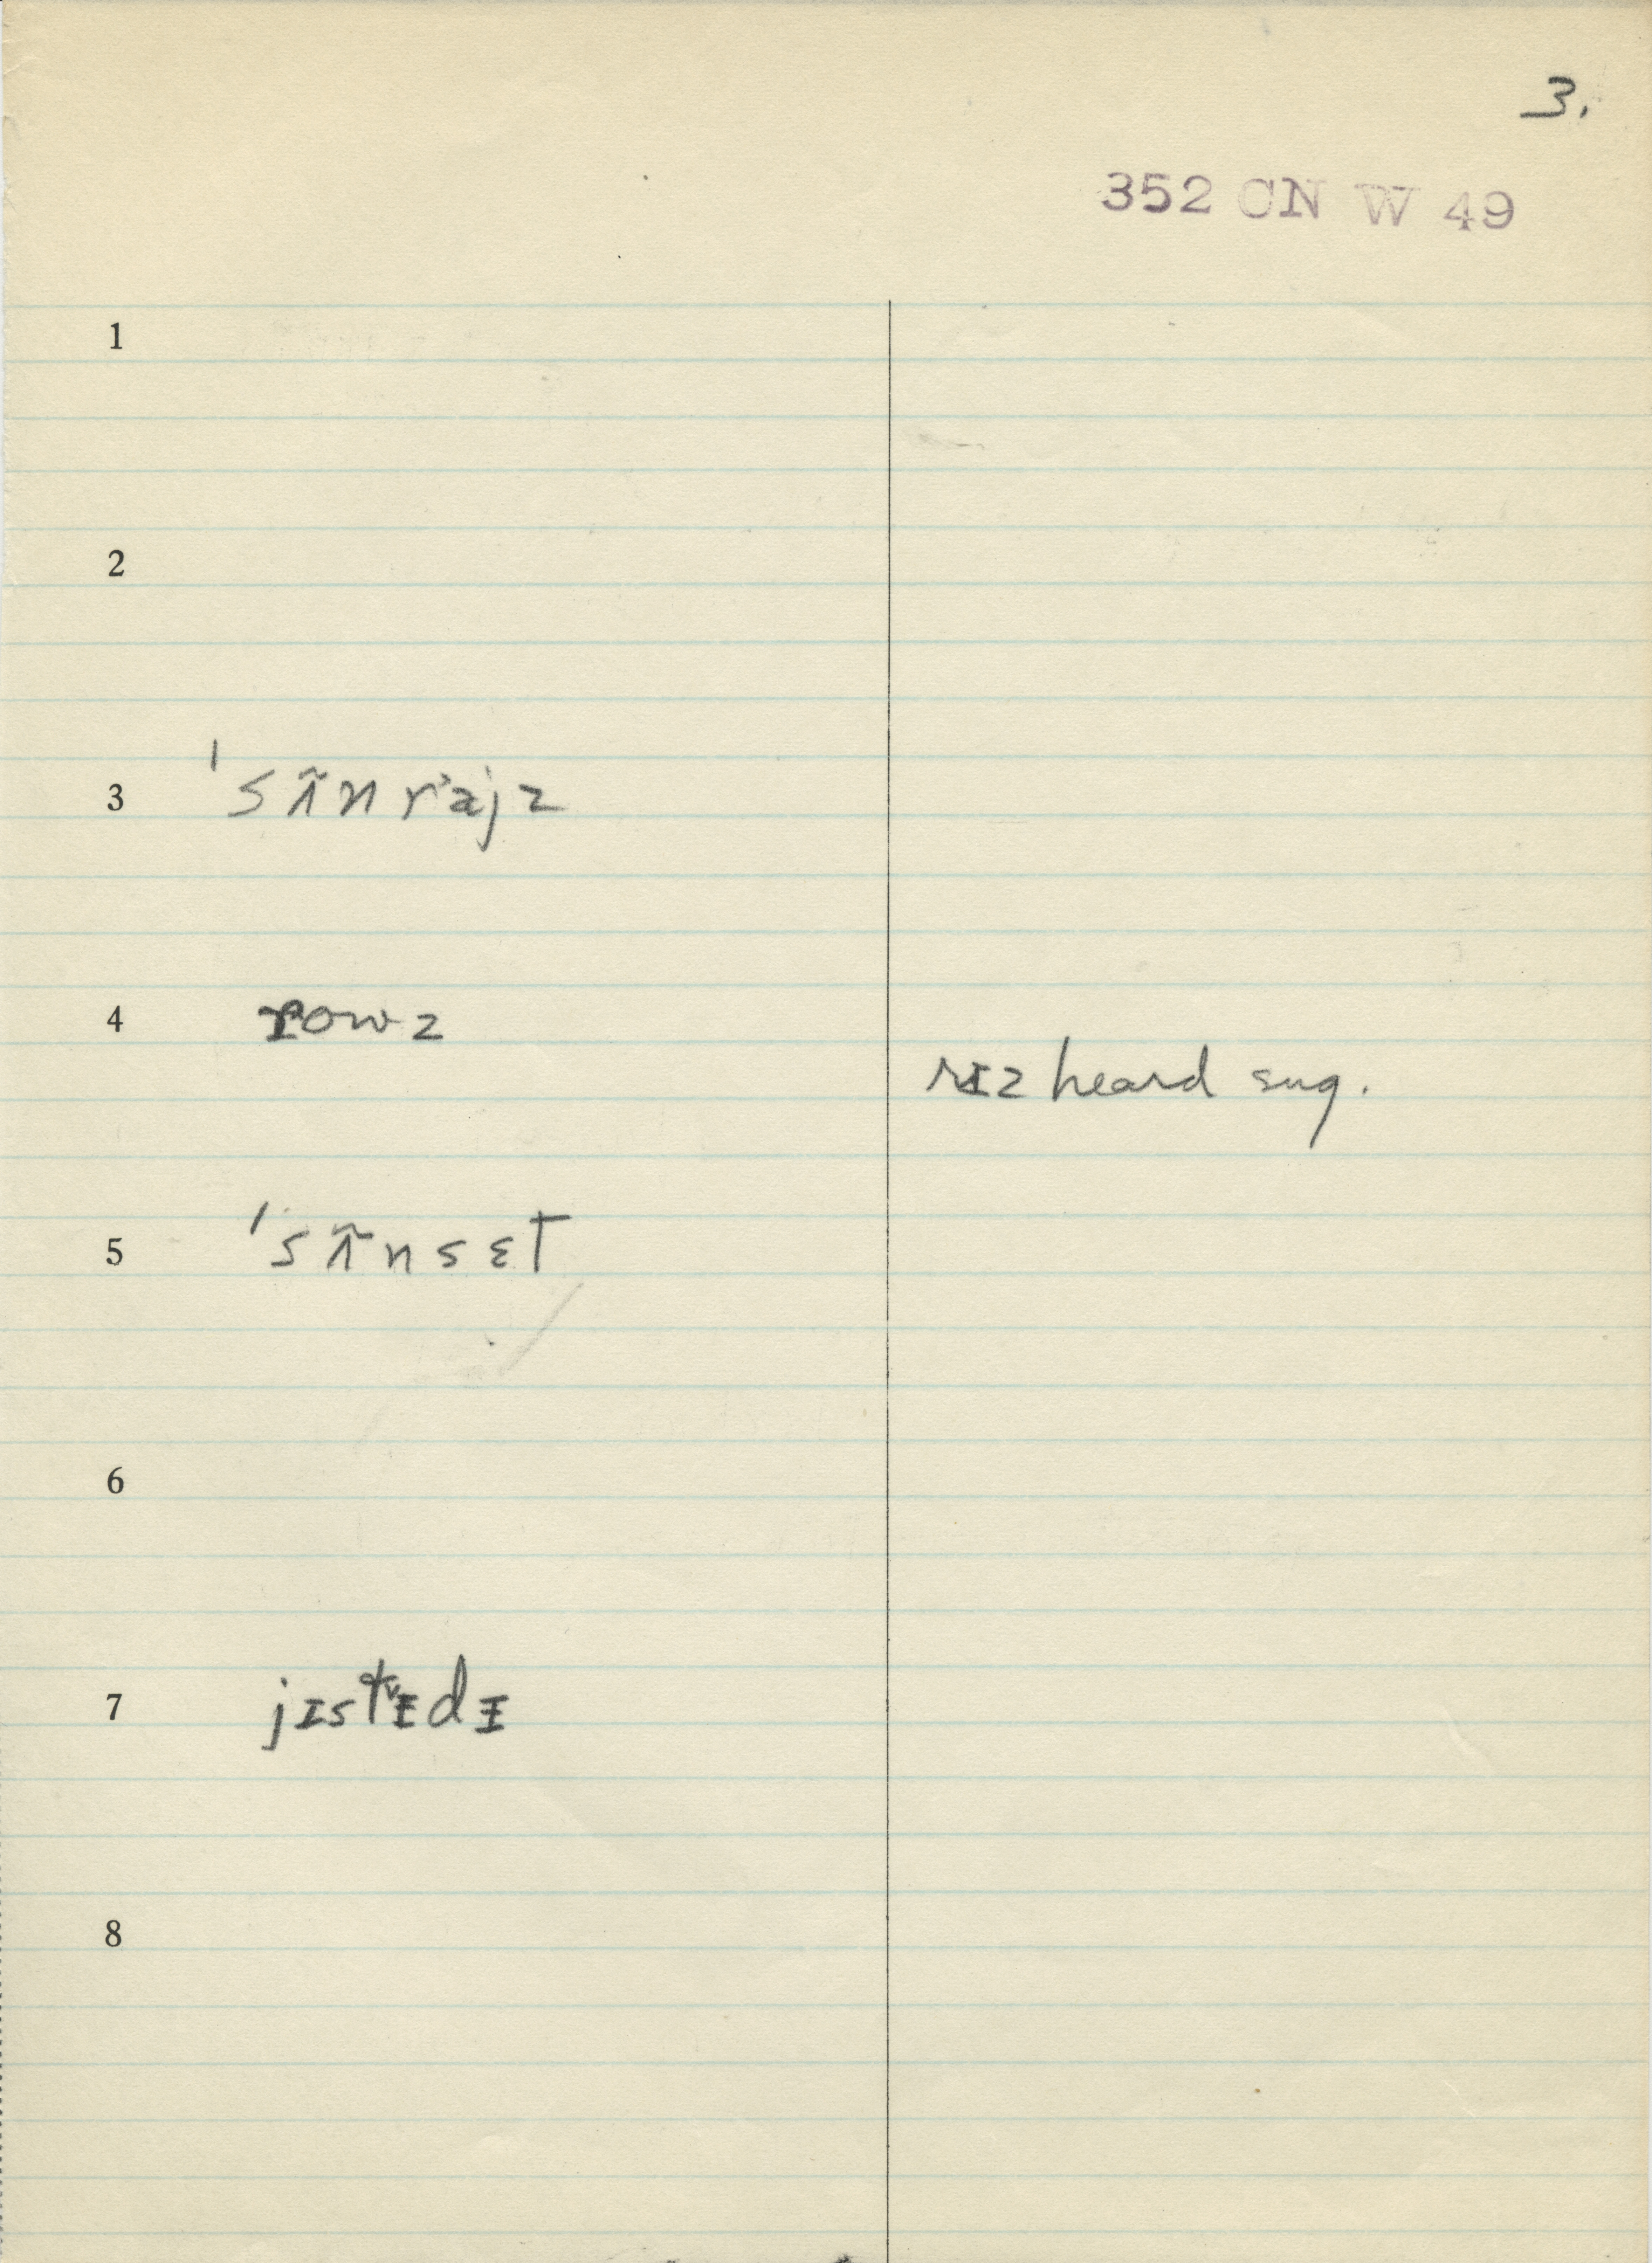 3.
352 CN W 49
1
2
3 ˈsʌ̃nra˃jz
4 rowz
rɪz heard sug.
5 ˈsʌ̃nsɛt
6
7 jɪst ᵻdᵻ
8